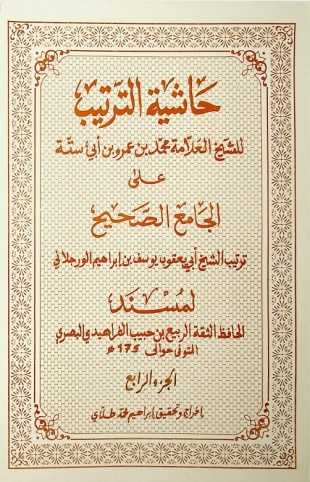 حاشية الترتيب
للشيخ العلامة محمد بن عمرو بن أبي ستة
على
الجامع الصحيح
ترتيب الشيخ أبي يعقوب يوسف بن إبراهيم الورجلاني
لمسند
الحافظ الثقة الربيع بن حبيب الفراهيدي البصري
المتوفى حوالي 175 هـ
الجزء الرابع
إخراج وتحقيق إبراهيم محمد طلاي